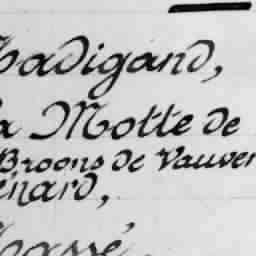 hadigand,
la Motte de
Broons de Vauver
énard,
hassé,